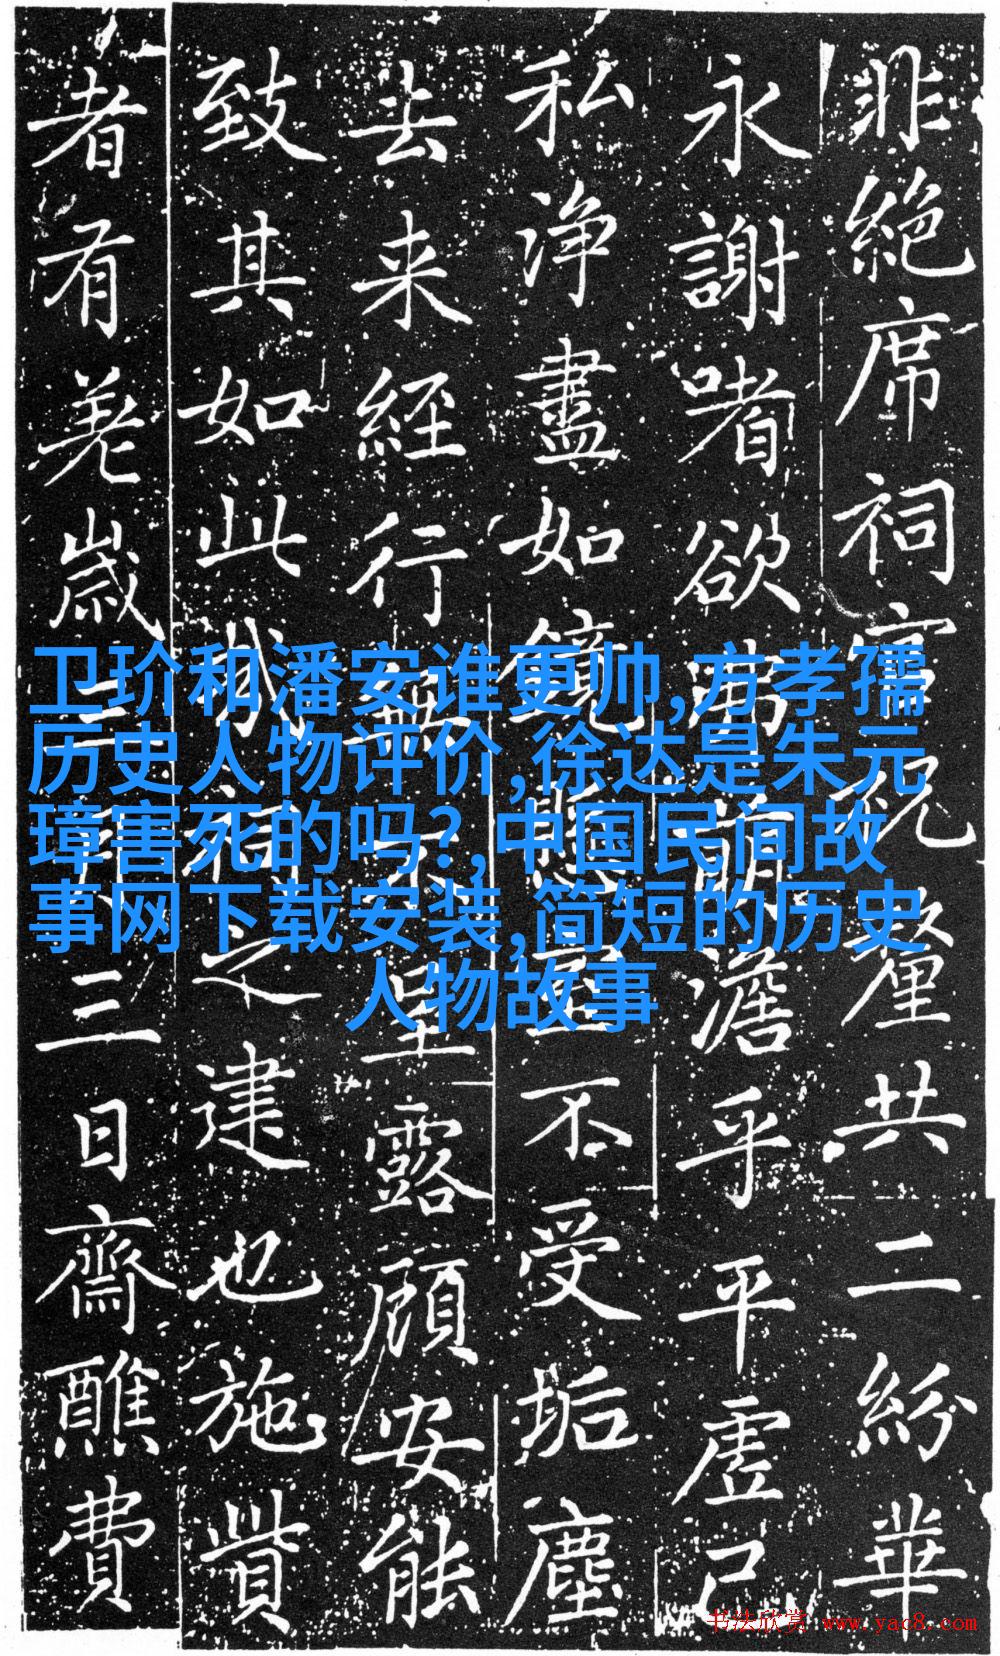 非絶席祠官祝釐共二紛華
永謝嗜欲萌澹乎平虚己
私浄盡如鏡不受垢塵
去来経行無露顧安能
致其如此哉祠之建也施貲
者有羌歲三日齋醮費
卫玠和潘安谁更帅,方孝孺
历史人物评价,徐达是朱元
璋害死的吗?,中国民间故
事网下载安装,简短的历史
人物故事
书法欣赏 www.yac8.com